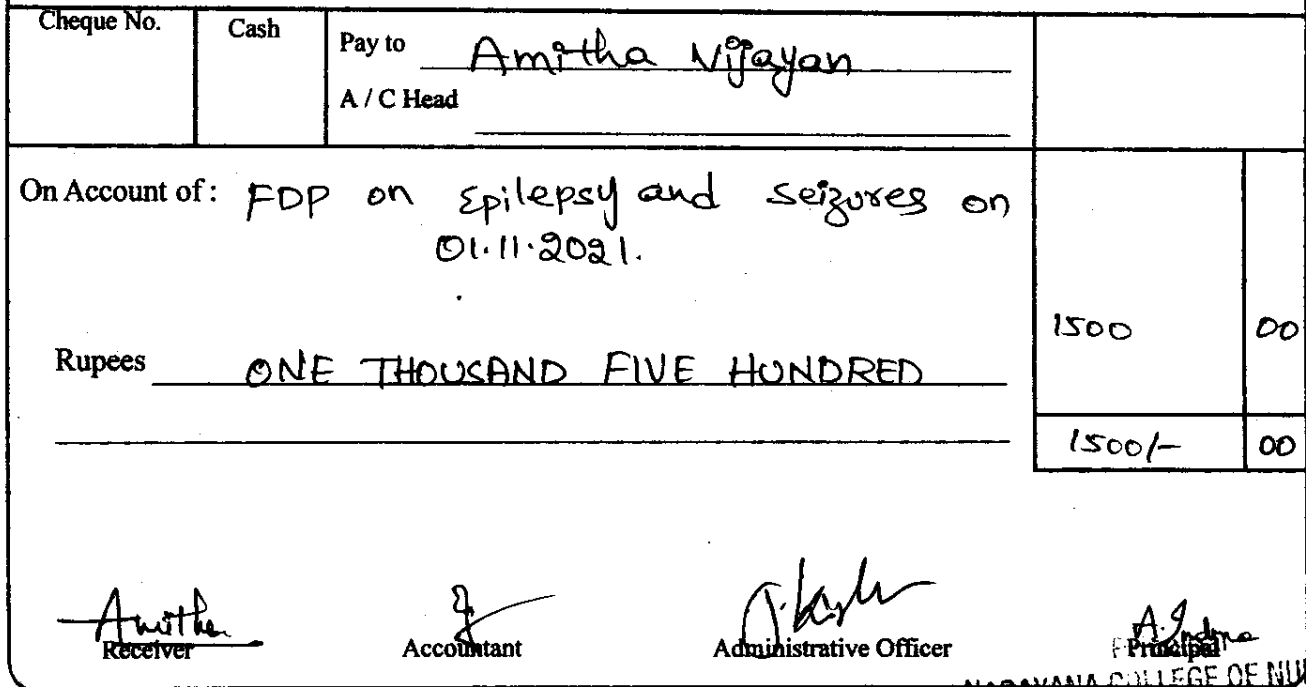 Cheque No. Cash Pay to Amitha Vijayan
A / C Head
On Account of : FDP on Epilepsy and seizures on
01.11.2021.
1500 00
Rupees ONE THOUSAND FIVE HUNDRED
1500/- 00
Amitha
Receiver Accountant Administrative Officer Principal
COLLEGE OF